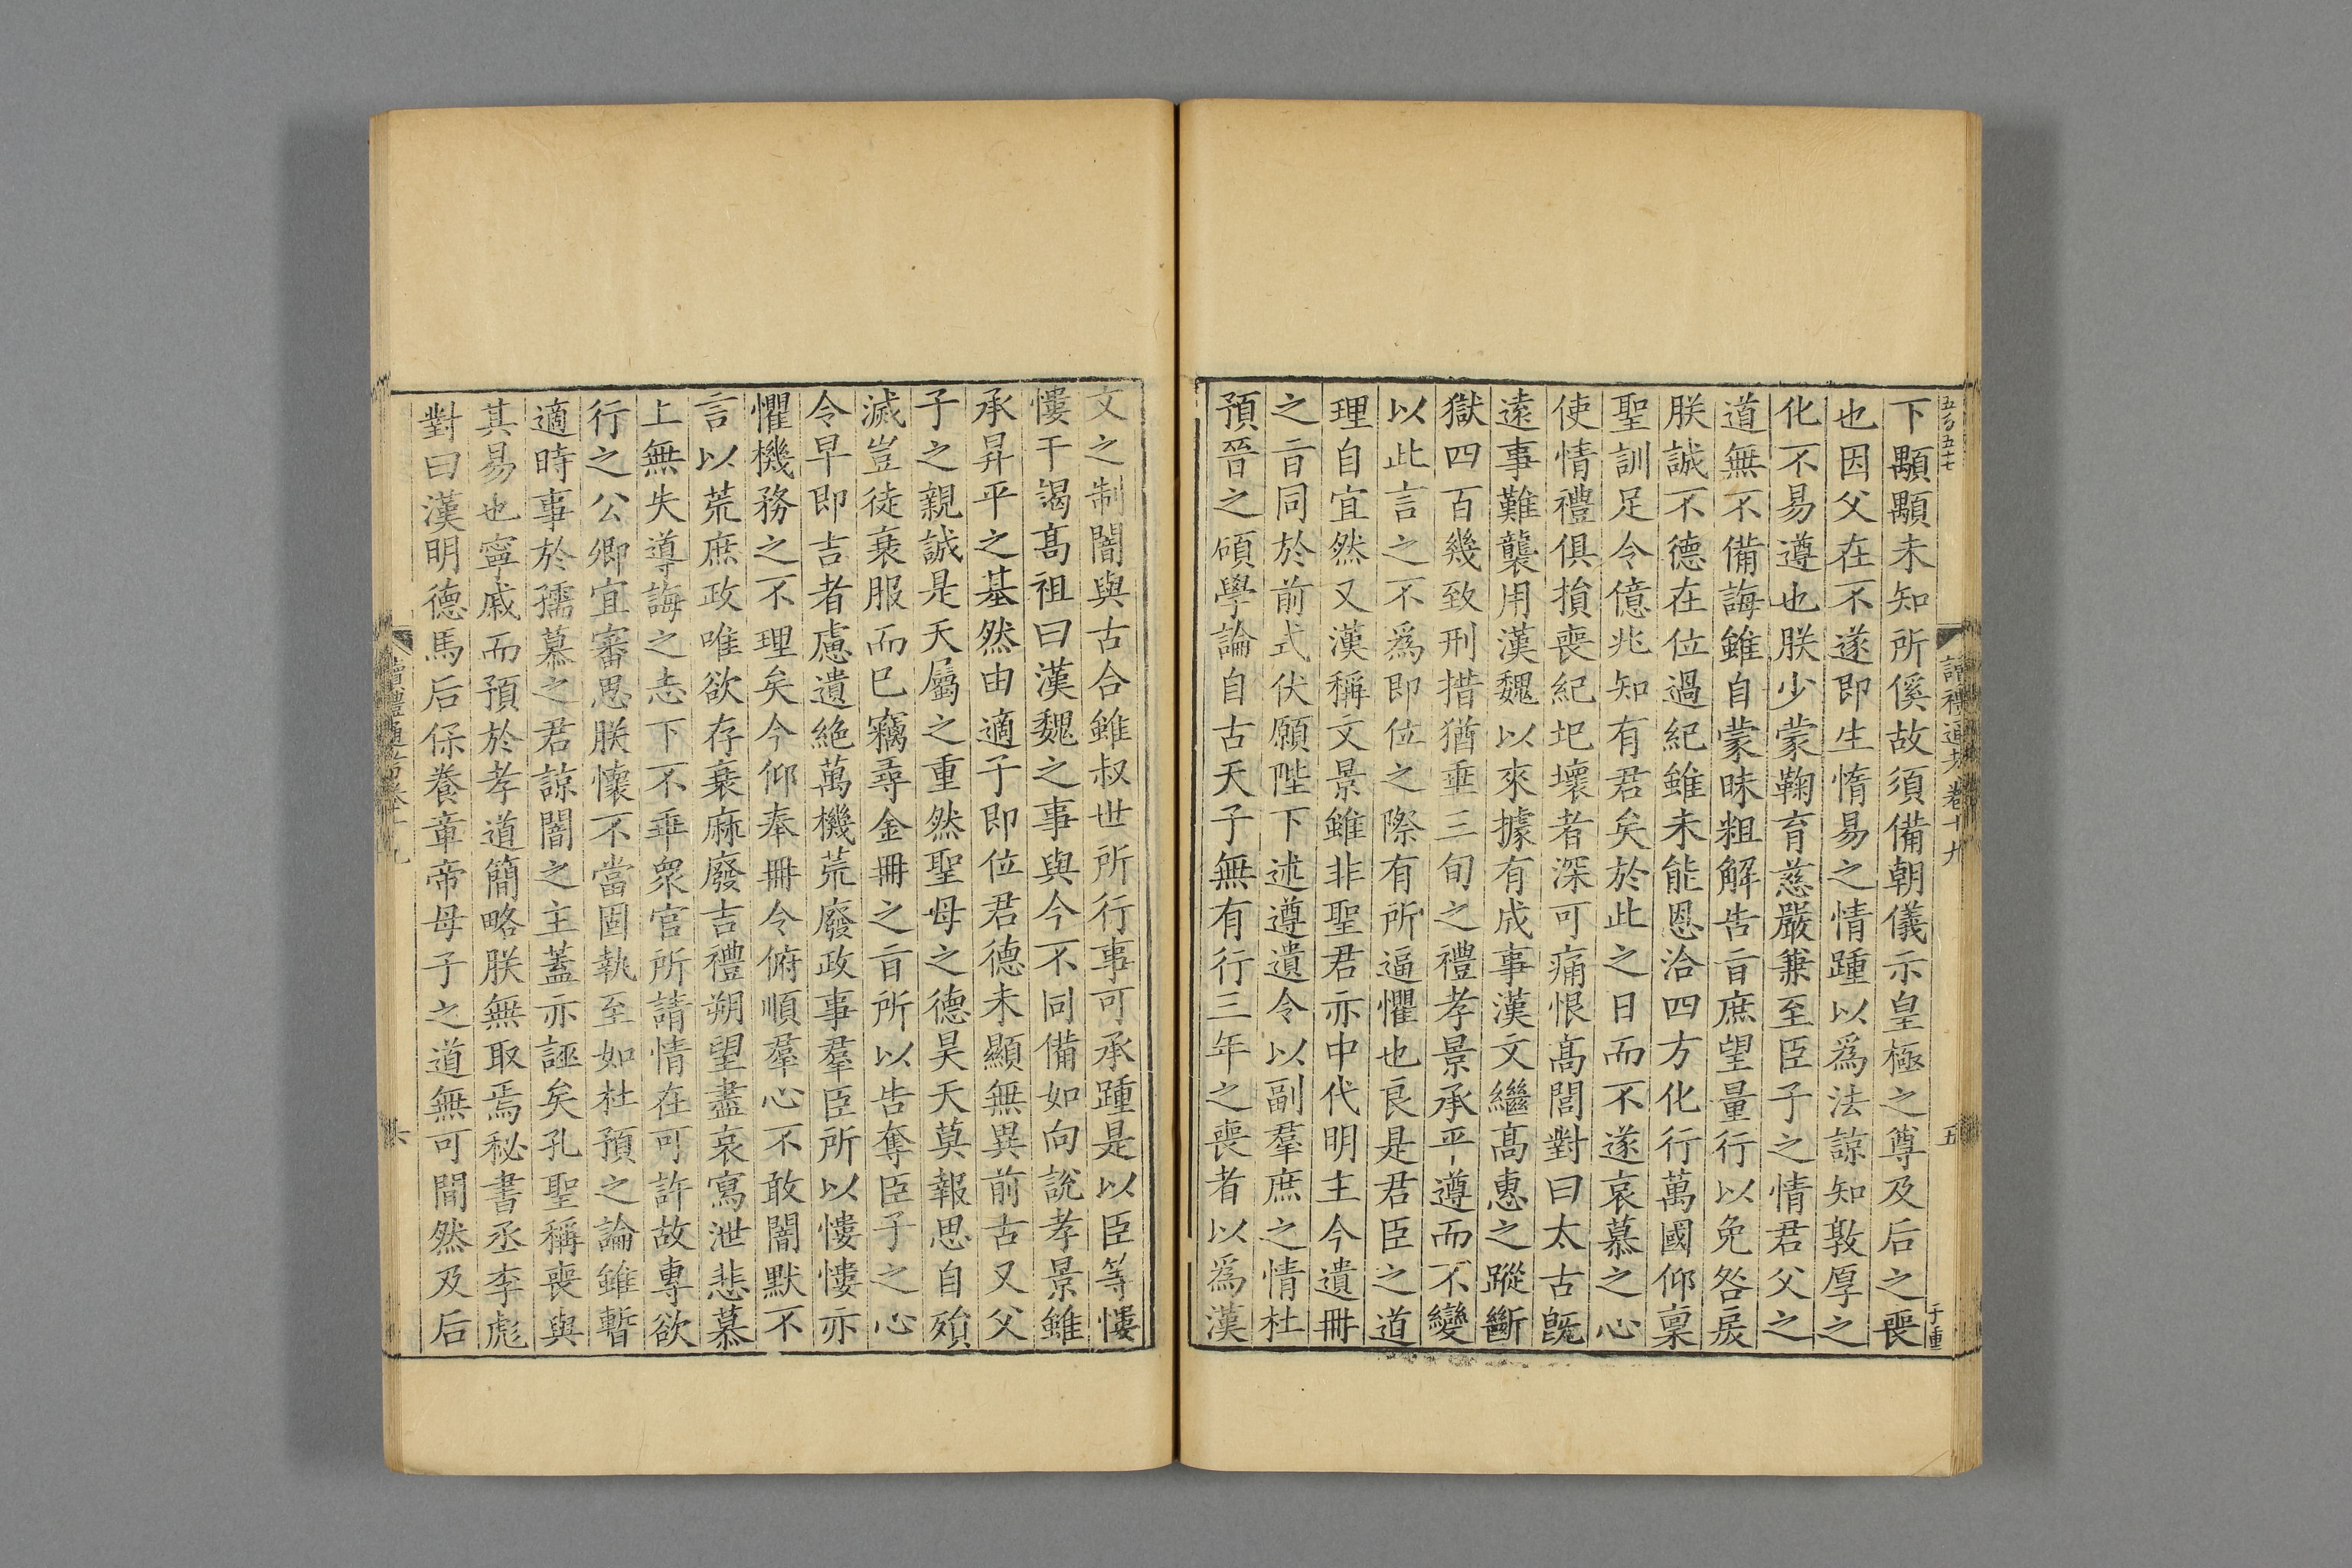 五百五十七
讀禮通考卷十九
五
子重
下顒顒未知所傒故須備朝儀示皇極之尊及后之喪
也因父在不遂即生惰易之情踵以爲法諒知敦厚之
化不易遵也朕少蒙鞠育慈嚴兼至臣子之情君父之
道無不備誨雖自蒙昧粗解告旨庶望量行以免咎戾
朕誠不德在位過紀雖未能恩洽四方化行萬國仰稟
聖訓足令億兆知有君矣於此之日而不遂哀慕之心
使情禮俱損喪紀圮壞者深可痛恨高閭對曰太古旣
遠事難襲用漢魏以來據有成事漢文繼高惠之蹤斷
獄四百幾致刑措猶垂三旬之禮孝景承平遵而不變
以此言之不爲即位之際有所逼懼也良是君臣之道
理自宜然又漢稱文景雖非聖君亦中代明主今遺冊
之旨同於前式伏願陛下述遵遺令以副羣庶之情杜
預晉之碩學論自古天子無有行三年之喪者以爲漢
文之制闇與古合雖叔世所行事可承踵是以臣等慺
慺干謁高祖曰漢魏之事與今不同備如向說孝景雖
承昇平之基然由適子即位君德未顯無異前古又父
子之親誠是天屬之重然聖母之德昊天莫報思自殞
滅豈徒衰服而巳竊尋金冊之旨所以告奪臣子之心
令早即吉者慮遺絶萬機荒廢政事羣臣所以慺慺亦
懼機務之不理矣今仰奉冊令俯順羣心不敢闇默不
言以荒庶政唯欲存衰麻廢吉禮朔望盡哀寫泄悲慕
上無失導誨之志下不乖衆官所請情在可許故專欲
行之公卿宜審思朕懷不當固執至如杜預之論雖暫
適時事於孺慕之君諒闇之主蓋亦誣矣孔聖稱喪與
其易也寧戚而預於孝道簡略朕無取焉秘書丞李彪
對曰漢明德馬后保養章帝母子之道無可間然及后
讀禮通考卷十九
六